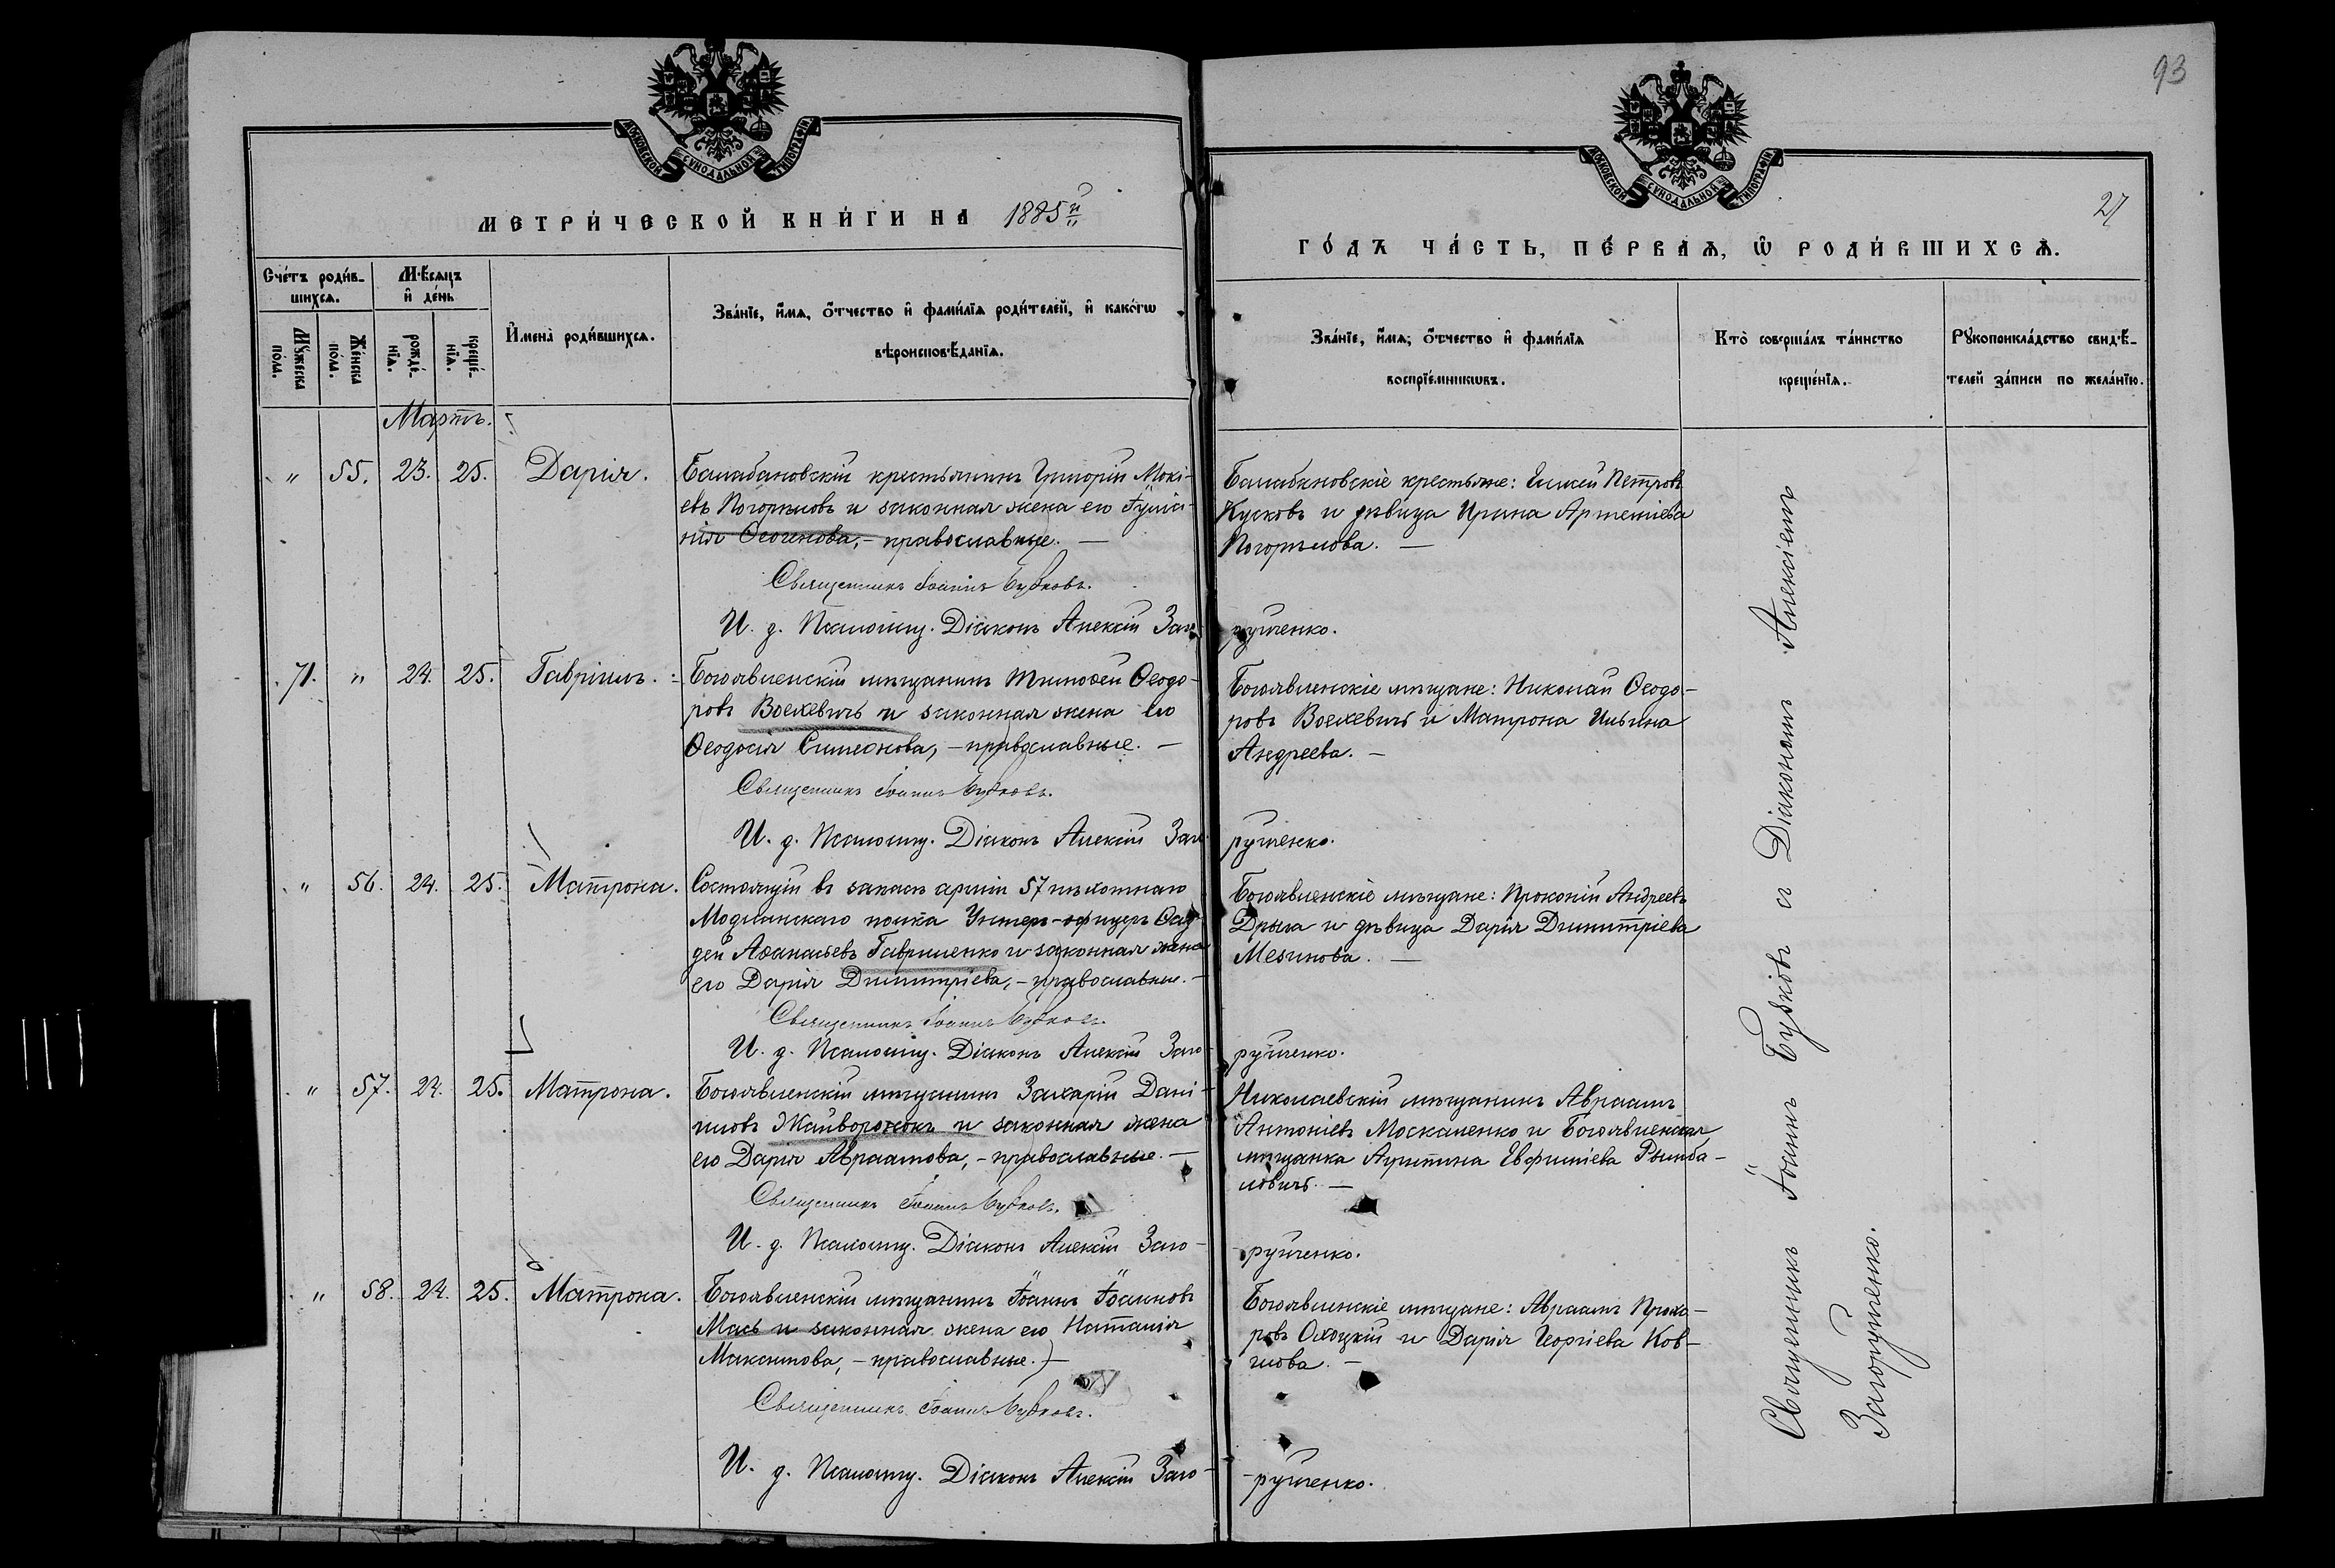 93
27
МОСКОВСКОЙ СѴНОДАЛЬНОЙ ТИПОГРАФІИ
МОСКОВСКОЙ СѴНОДАЛЬНОЙ ТИПОГРАФІИ
МЕТРИ́ЧЕСКОЙ КНИ́ГИ НА 1885й
ГО́ДЪ ЧА́СТЬ, ПЕ́РВАѦ, Ѿ РОДИ́ВШИХСѦ.
Сче́тъ роди́в-
шихсѧ.
Му́жеска
по́ла.
Же́нска
по́ла.
Мѣ́сѧцъ
и҆ де́нь
рожде́-
нїѧ.
креще́-
нїѧ.
И҆мена̀ роди́вшихсѧ.
Зва́нїе, и҆́мѧ, ѻ҆́тчество и҆ фами́лїѧ роди́телей, и҆ како́гѡ
вѣроисповѣ́данїѧ.
Зва́нїе, и҆́мѧ, ѻ҆́тчество и҆ фами́лїѧ
воспрїе́мникѡвъ.
Кто̀ соверша́лъ та́инство
креще́нїѧ.
Рꙋкоприкла́дство свидѣ́-
телей за́писи по жела́нїю.
Мартъ.
" 55. 23. 25. Дарія. Балабановскій крестьянинъ Григорій Мокі-
евъ Погорѣловъ и законная жена его Іуліа-
нія православные. —
Священникъ Іоаннъ Бубковъ.
И. д. Псаломщ. Діаконъ Алексій Заго-
Балабановскіе крестьяне: Петровъ
Кусковъ и дѣвица Ирина Артеміева
Погорѣлова. —
рутченко.
71. " 24. 25. Гавріилъ. Богоявленскій мѣщанинъ Тимофей Ѳеодо-
ровъ Воехевичъ и законная жена его
Ѳеодосія Симеонова, — православные. —
Священникъ Іоаннъ Бубковъ.
И. д. Псаломщ. Діаконъ Алексій Заго-
Богоявленскіе мѣщане: Николай Ѳеодо-
ровъ Воехевичъ и Матрона Ильина
Андреева. —
рутченко.
" 56. 24. 25. Матрона. Состоящій въ запасѣ арміи 57 пѣхотнаго
Модлинскаго полка Унтеръ-офицеръ Ѳад-
дей Аѳанасьевъ Гавриленко и законная жена
его Дарія Димитріева, — православные. —
Священникъ Іоаннъ Бубковъ.
И. д. Псаломщ. Діаконъ Алексій Заго-
Богоявленскіе мѣщане: Прокопій Андреевъ
Дрыга и дѣвица Дарія Димитріева
Мезинова. —
рутченко.
" 57. 24. 25. Матрона. Богоявленскій мѣщанинъ Захарій Дані-
иловъ Жайворонокъ и законная жена
его Дарія Авраамова, — православные. —
Священникъ Іоаннъ Бубковъ.
И. д. Псаломщ. Діаконъ Алексій Заго-
Николаевскій мѣщанинъ Авраамъ
Антоніевъ Москаленко и Богоявленская
мѣщанка Агрипина Евфиміева Рымба-
ловичъ. —
рутченко.
" 58. 24. 25. Матрона. Богоявленскій мѣщанинъ Іоаннъ Іоанновъ
Мась и законная жена его Наталія
Максимова, — православные. —
Священникъ Іоаннъ Бубковъ.
И. д. Псаломщ. Діаконъ Алексій Заго-
Богоявленскіе мѣщане: Авраамъ Прохо-
ровъ Охоцкій и Дарія Георгіева Ков-
рутченко.
Священникъ Іоаннъ Бубковъ съ Діакономъ Алексіемъ
Загорутченко.